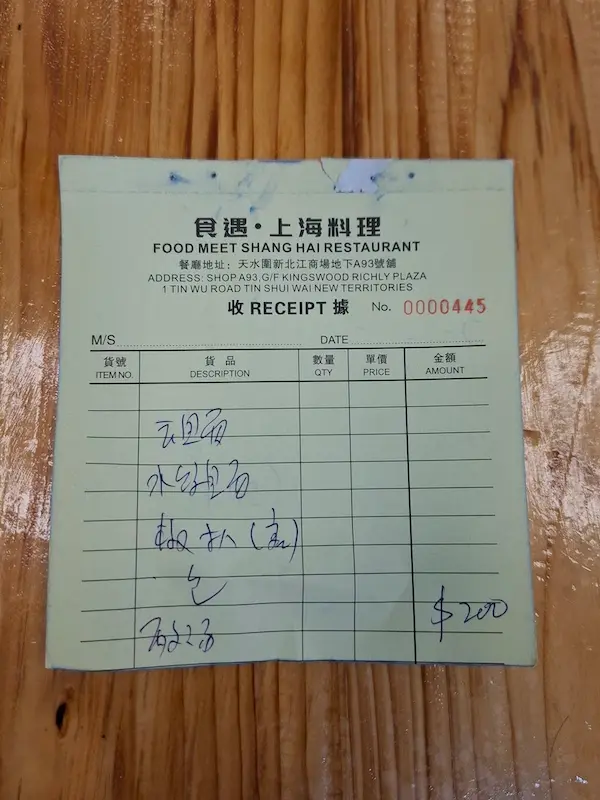 食遇·上海料理
FOOD MEET SHANG HAI RESTAURANT
餐廳地址：天水圍新北江商場地下A93號舖
ADDRESS: SHOP A93,G/F KINGSWOOD RICHLY PLAZA
1 TIN WU ROAD TIN SHUI WAI NEW TERRITORIES
收 RECEIPT 據 No. 0000445
M/S DATE
貨號 貨品 數量 單價 金額
ITEM NO. DESCRIPTION QTY PRICE AMOUNT
扒
包
$200